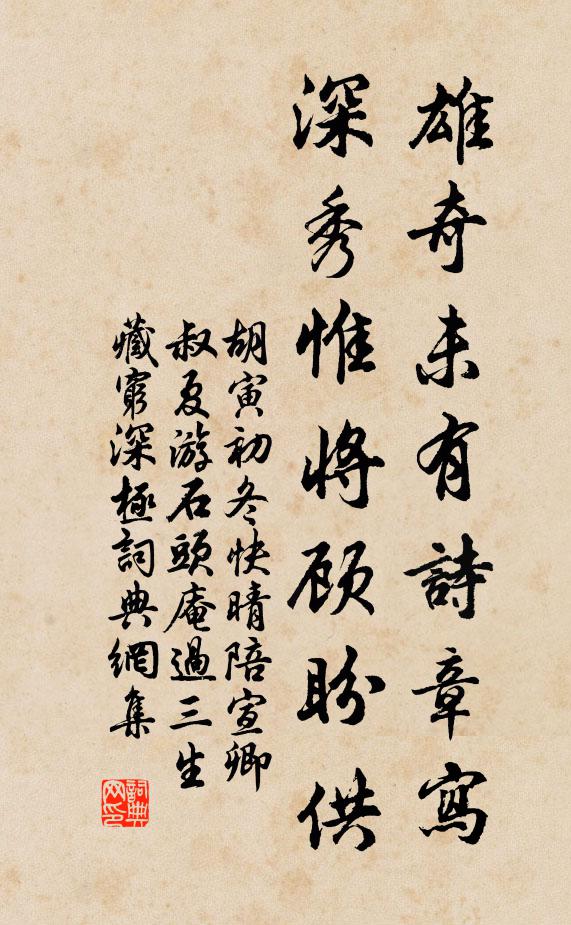 雄奇未有詩章寫
深秀惟將顾盼供
胡寅初冬快晴陪宣卿
叔夏游石頭庵過三生
藏窮深極詞典網集
詞典
网印